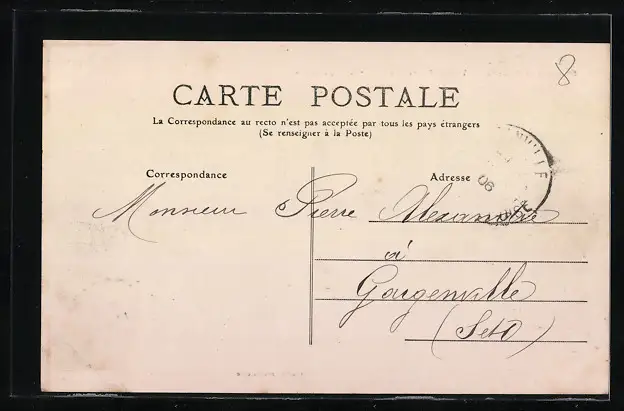 8
CARTE POSTALE
La Correspondance au recto n'est pas acceptée par tous les pays étrangers
(Se renseigner à la Poste)
Correspondance
Adresse
Monsieur Pierre Alexandre
à
Gargenville
(S et O)
06